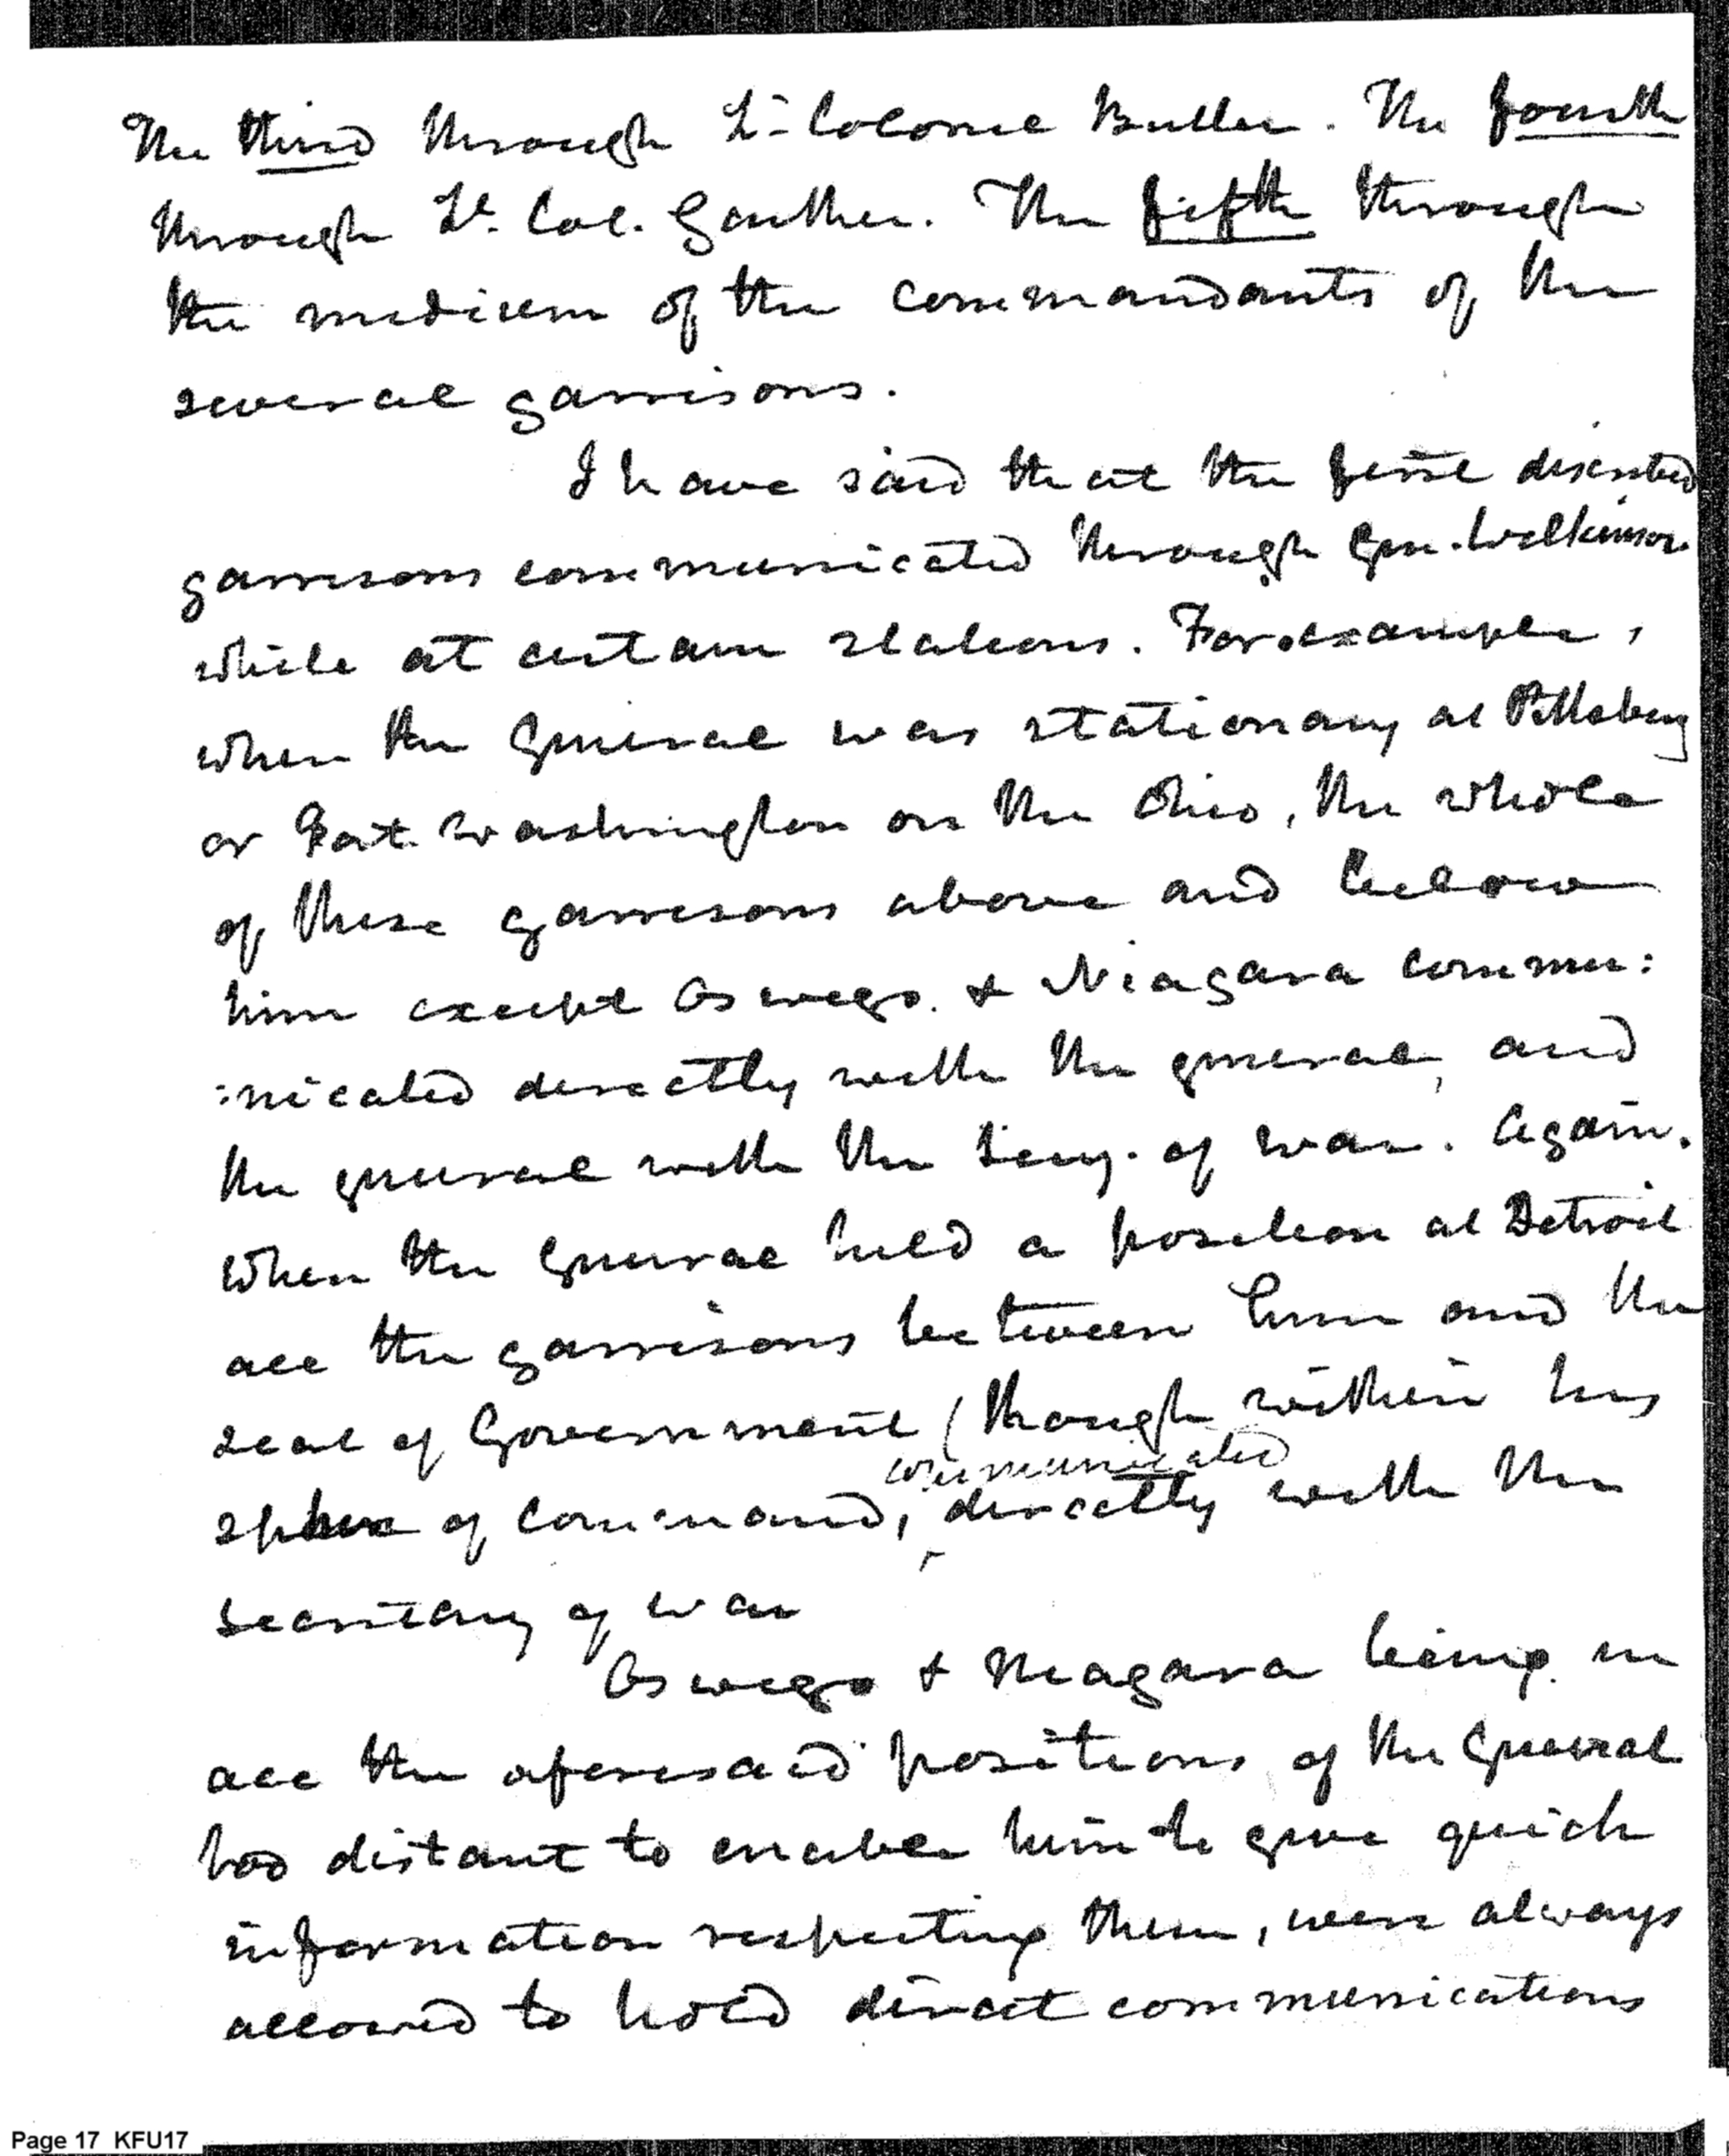 The third through Lt Colonel Butler. The fourth
through Lt. Col. Gaither. The fifth through
the medium of the commandants of the
several garrisons.
I have said that the first district
garrisons communicated through Gen. Wilkinson
while at certain stations. For example,
when the General was stationary at Pittsburg
or Fort Washington on the Ohio, the whole
of these garrisons above and below
him except Oswego. & Niagara commu:
:nicated directly with the general, and
the general with the Secy. of War. Again.
When the General held a position at Detroit
all the garrisons between him and the
seat of Government (though within his
communicated
sphere of command, directly with the
Secretary of War
Oswego & Niagara being in
all the aforesaid positions of the General
too distant to enable him to give quick
information respecting them, were always
allowed to hold direct communications
Page 17 KFU17